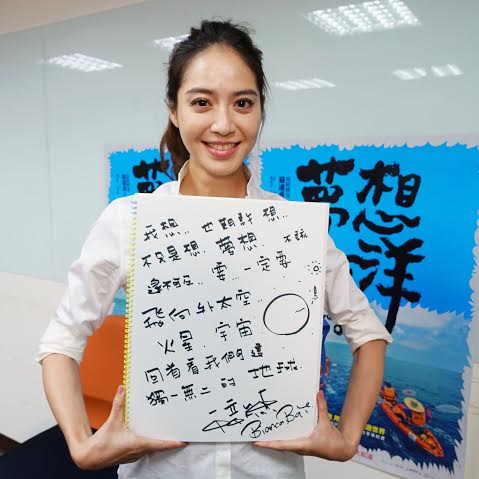 我想... 也期許 想...
不只是想, 夢想... 不該
要... 一定要
飛向外太空...
火星. 宇宙
回首看我們這
獨一無二的 地球.
Bianca Bai
夢
想
洋